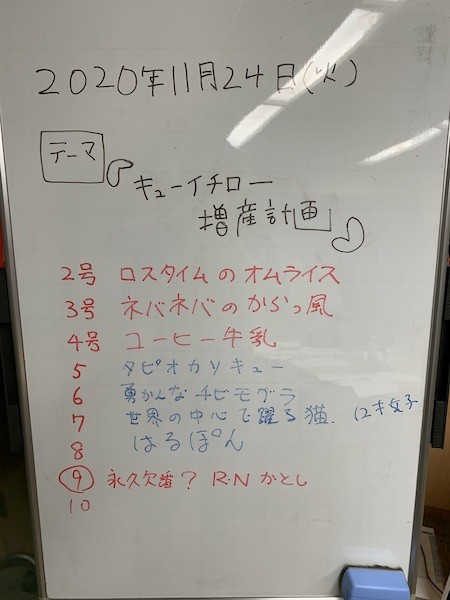 2020年11月24日(火)
テーマ
キューイチロー
増産計画
2号 ロスタイムのオムライス
3号 ネバネバのからっ風
4号 コーヒー牛乳
5 タピオカソキュー
6 勇かんなチビモグラ
7 世界の中心で躍る猫. 12才女子
8 はるぽん
9 永久欠番? R・N かとし
10